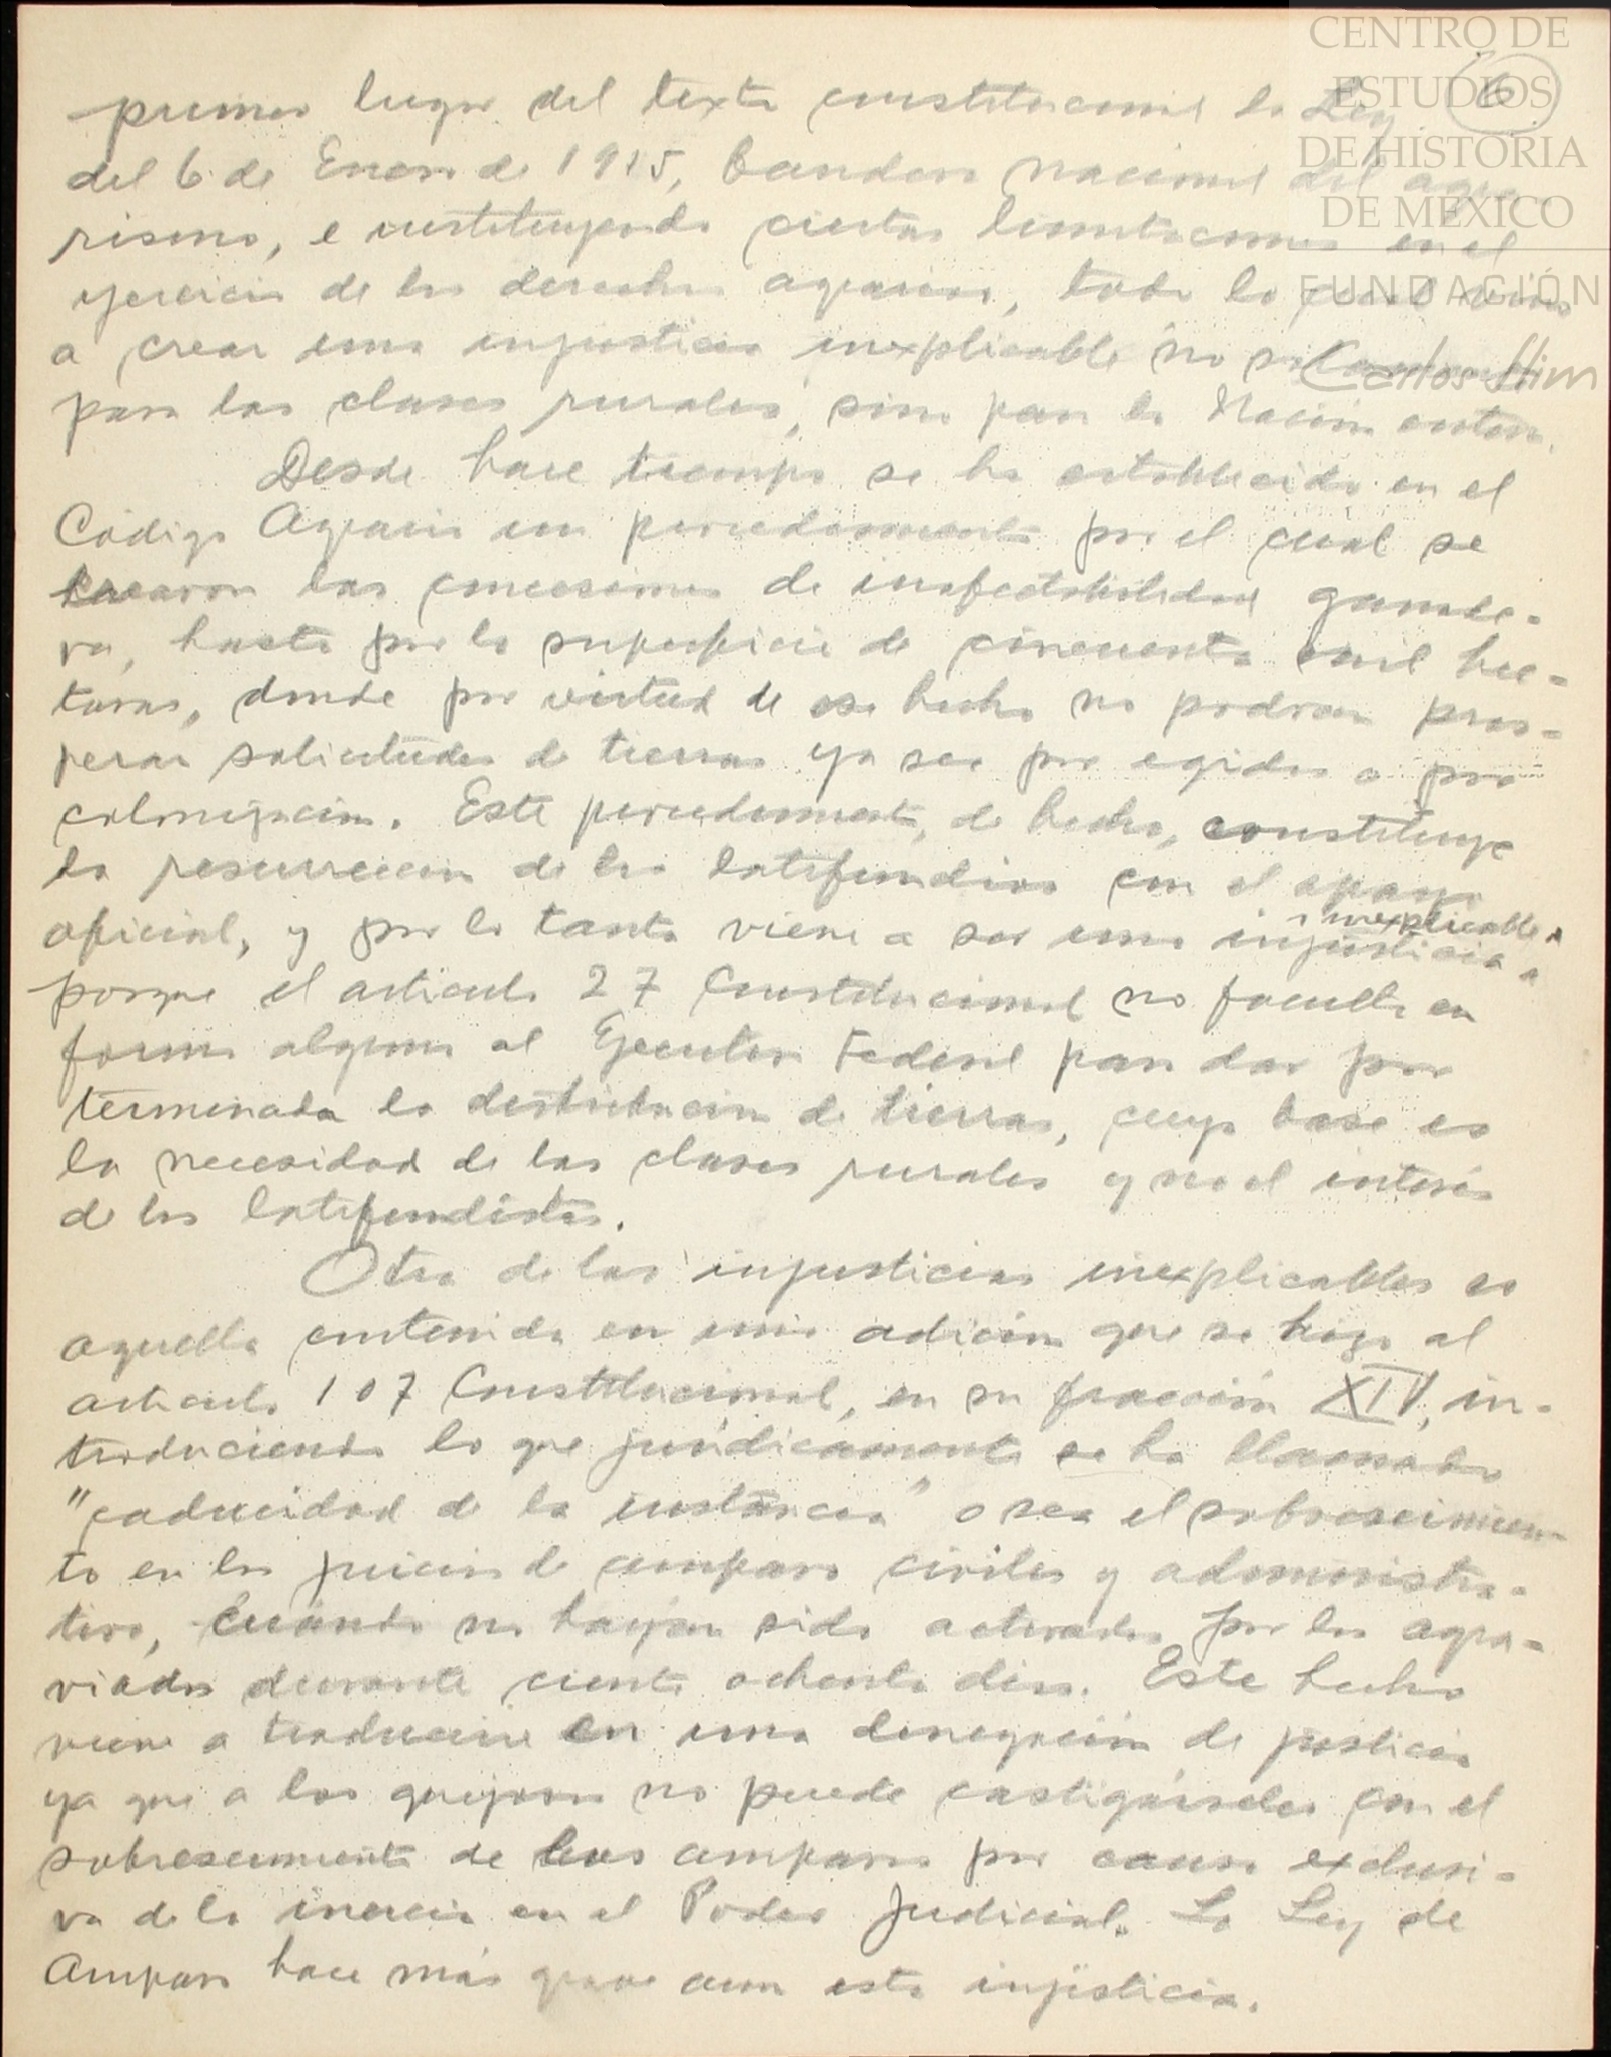 CENTRO DE
ESTUDIOS
DE HISTORIA
DE MÉXICO
FUNDACIÓN
Carlos Slim
6
primer lugar del texto constitucional la Ley
del 6 de Enero de 1915, bandera nacional del agra-
rismo, e instituyendo ciertas limitaciones en el
ejercicio de los derechos agrarios, todo lo cual vino
a crear una injusticia inexplicable no
para las clases rurales, sino para la Nación entera.
Desde hace tiempo se ha establecido en el
Código Agrario un procedimiento por el cual se
crearon las concesiones de inafectabilidad ganade-
ra, hasta por la superficie de cincuenta mil hec-
táras, donde por virtud de ese hecho no podran pros-
perar solicitudes de tierras ya sea por egidos o por
colonización. Este procedimiento, de hecho, constituye
la resurreccion de los latifundios con el apoyo
oficial, y por lo tanto viene a ser una injusticia inexplicable,
porque el articulo 27 Constitucional no faculta en
forma alguna al Ejecutivo Federal para dar por
terminada la distribución de tierras, cuya base es
la necesidad de las clases rurales y no el interés
de los latifundistas.
Otra de las injusticias inexplicables es
aquella contenida en una adición que se hizo al
articulo 107 Constitucional, en su fracción XIV, in-
troduciendo lo que juridicamente se ha llamado
"caducidad de la instancia" o sea el sobreseimien-
to en los juicios de amparo civiles y administra-
tivo, cuando no hayan sido activados por los agra-
viados durante ciento ochenta dias. Este hecho
viene a traducirse en una denegación de justicia
ya que a los quejosos no puede castigárseles con el
sobreseimiento de sus amparos por causa exclusi-
va de la inercia en el Poder Judicial. La Ley de
Amparo hace más grave aun esta injusticia.